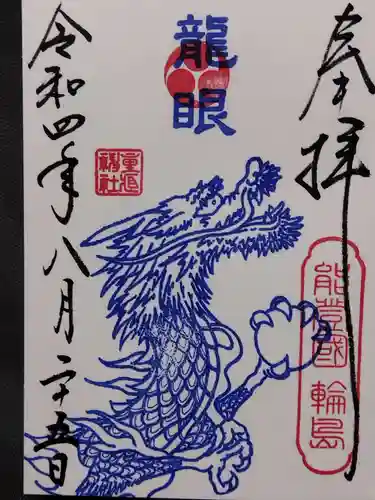 奉拝
能登國輪島
龍眼
重蔵神社
令和四年八月二十五日